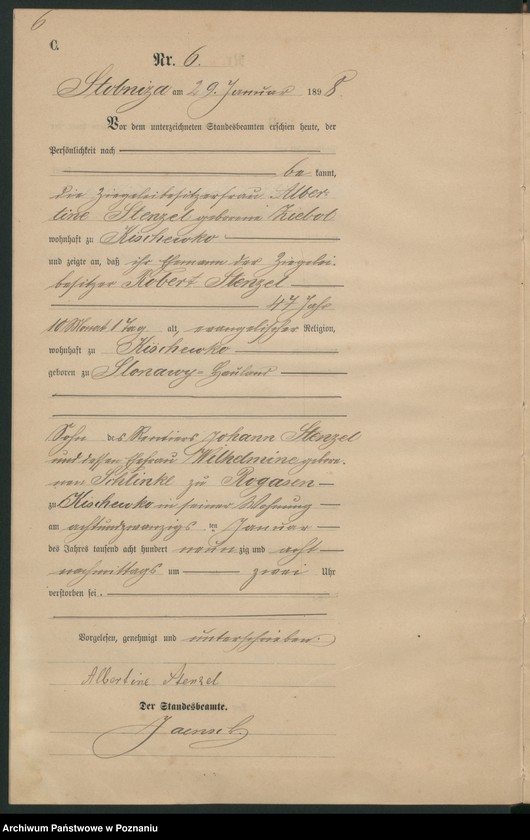 6
C.
Nr. 6.
Stobniza am 29. Januar 1898
Vor dem unterzeichneten Standesbeamten erschien heute, der
Persönlichkeit nach
be kannt,
die Ziegeleibesitzerfrau Alber-
tine Stenzel geborene Ziebol
wohnhaft zu Kischewko
und zeigte an, daß ihr Ehemann der Ziegelei-
besitzer Robert Stenzel
47 Jahr
10 Monat 1 Tag alt, evangelischer Religion,
wohnhaft zu Kischewko
geboren zu Slonawy-Hauland
Sohn des Rentiers Johann Stenzel
und dessen Ehefrau Wilhelmine gebore-
nen Schlinke zu Rogasen
zu Kischewko in seiner Wohnung
am achtundzwanzigs ten Januar
des Jahres tausend acht hundert neun zig und acht
nachmittags um zwei Uhr
verstorben sei.
Vorgelesen, genehmigt und unterschrieben.
Albertine Stenzel
Der Standesbeamte.
Jaensch
Archiwum Państwowe w Poznaniu